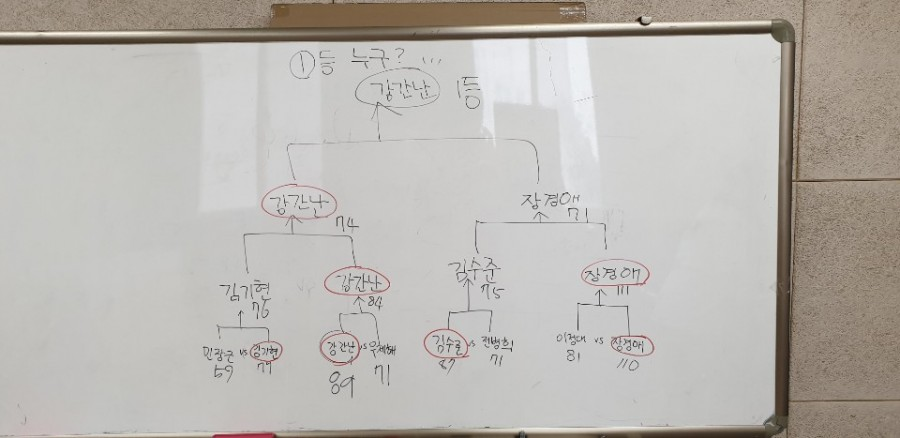 ①등 누구? ...
강간난 1등
강간난 장경애
74 71
김기현 강간난 김수준 장경애
76 84 75 111
민장근 vs 김기현 강간난 vs 김수준 vs 전병희 이정대 vs 장경애
59 77 89 71 87 71 81 110